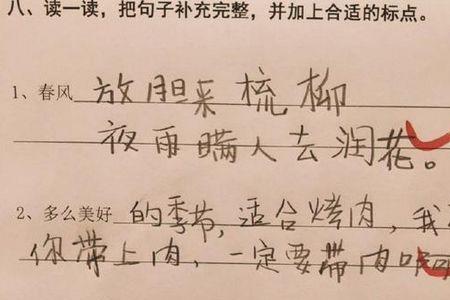 八、读一读，把句子补充完整，并加上合适的标点。
1、春风 放胆采梳柳
夜雨瞒人去润花。
2、多么美好 的季节，适合烤肉，我
你带上肉，一定要带肉